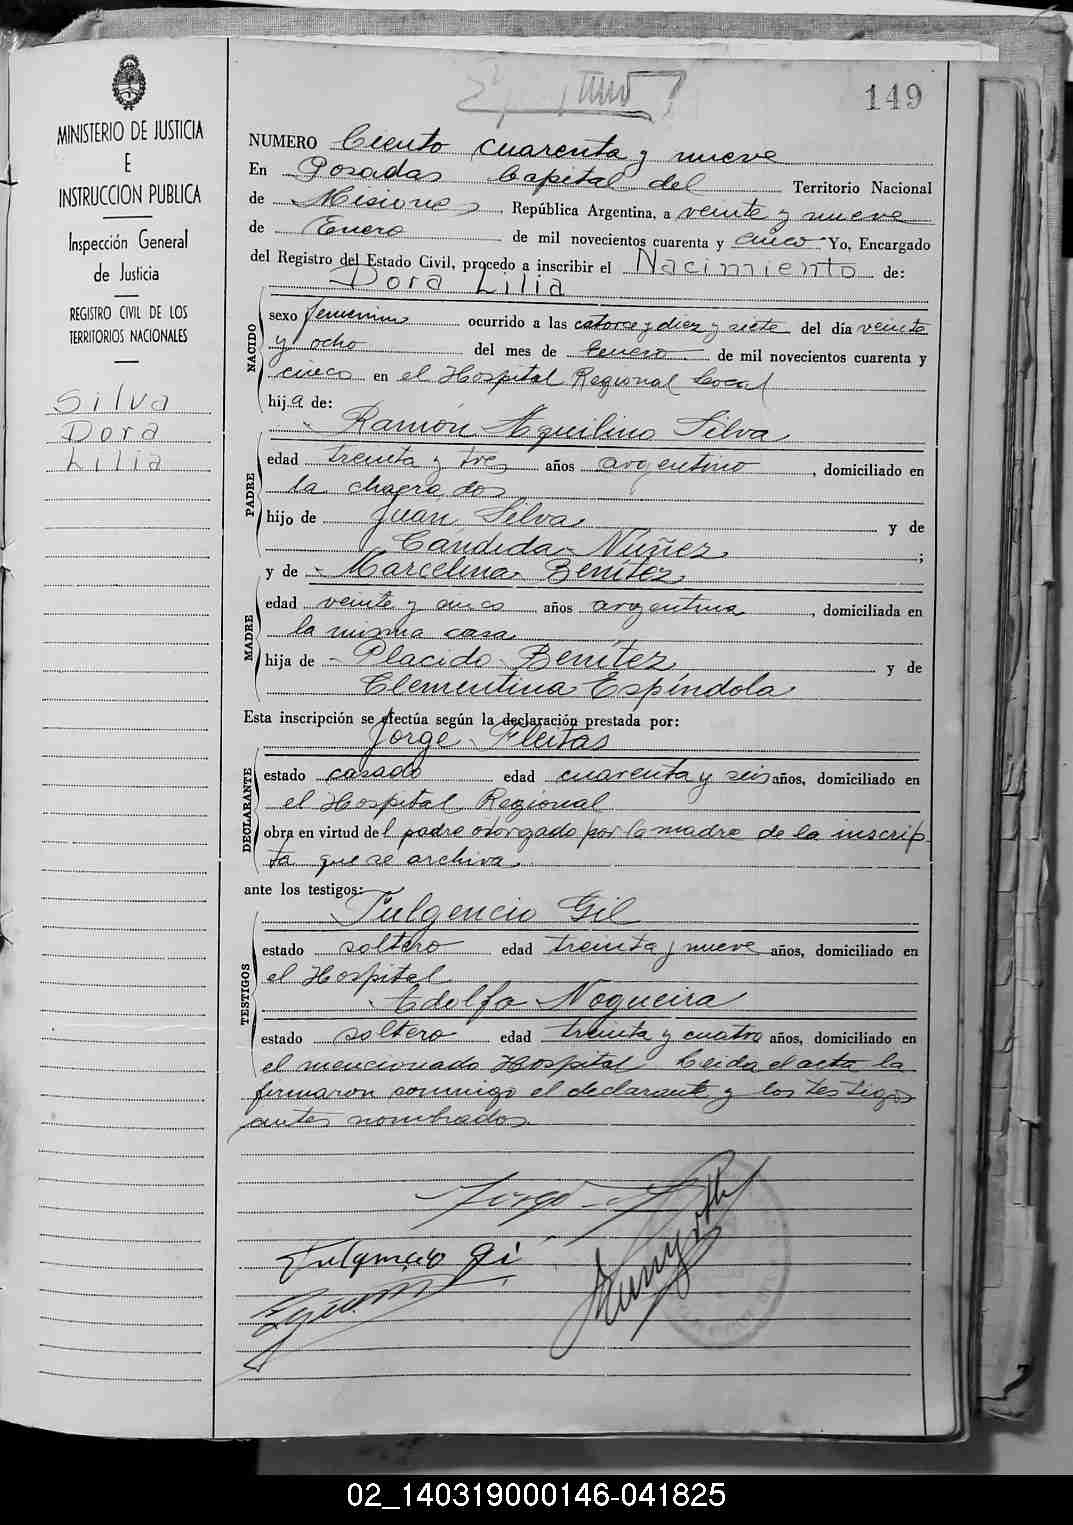 149
MINISTERIO DE JUSTICIA
E
INSTRUCCION PUBLICA
Inspección General
de Justicia
REGISTRO CIVIL DE LOS
TERRITORIOS NACIONALES
Silva
Dora
Lilia
NUMERO Ciento cuarenta y nueve
En Posadas Capital del Territorio Nacional
de Misiones, República Argentina, a veinte y nueve
de Enero de mil novecientos cuarenta y cinco Yo, Encargado
del Registro del Estado Civil, procedo a inscribir el Nacimiento de:
Dora Lilia
NACIDO
sexo femenino ocurrido a las catorce y diez y siete del día veinte
y ocho del mes de Enero de mil novecientos cuarenta y
cinco en el Hospital Regional Local
hija de:
Ramón Aquilino Silva
PADRE
edad treinta y tres años argentino, domiciliado en
la chacra dos
hijo de Juan Silva y de
Candida Nuñez;
y de Marcelina Benítez
MADRE
edad veinte y cinco años argentina, domiciliada en
la misma casa
hija de Placido Benítez y de
Clementina Espíndola
Esta inscripción se efectúa según la declaración prestada por:
Jorge Fleitas
DECLARANTE
estado casado edad cuarenta y seis años, domiciliado en
el Hospital Regional
obra en virtud del padre otorgado por la madre de la inscrip
ta que se archiva.
ante los testigos:
Fulgencio Gil
TESTIGOS
estado soltero edad treinta y nueve años, domiciliado en
el Hospital
Adolfo Nogueira
estado soltero edad treinta y cuatro años, domiciliado en
el mencionado Hospital Leida el acta la
firmaron conmigo el declarante y los testigos
antes nombrados.
Jorge
Fulgencio Gi
02_140319000146-041825